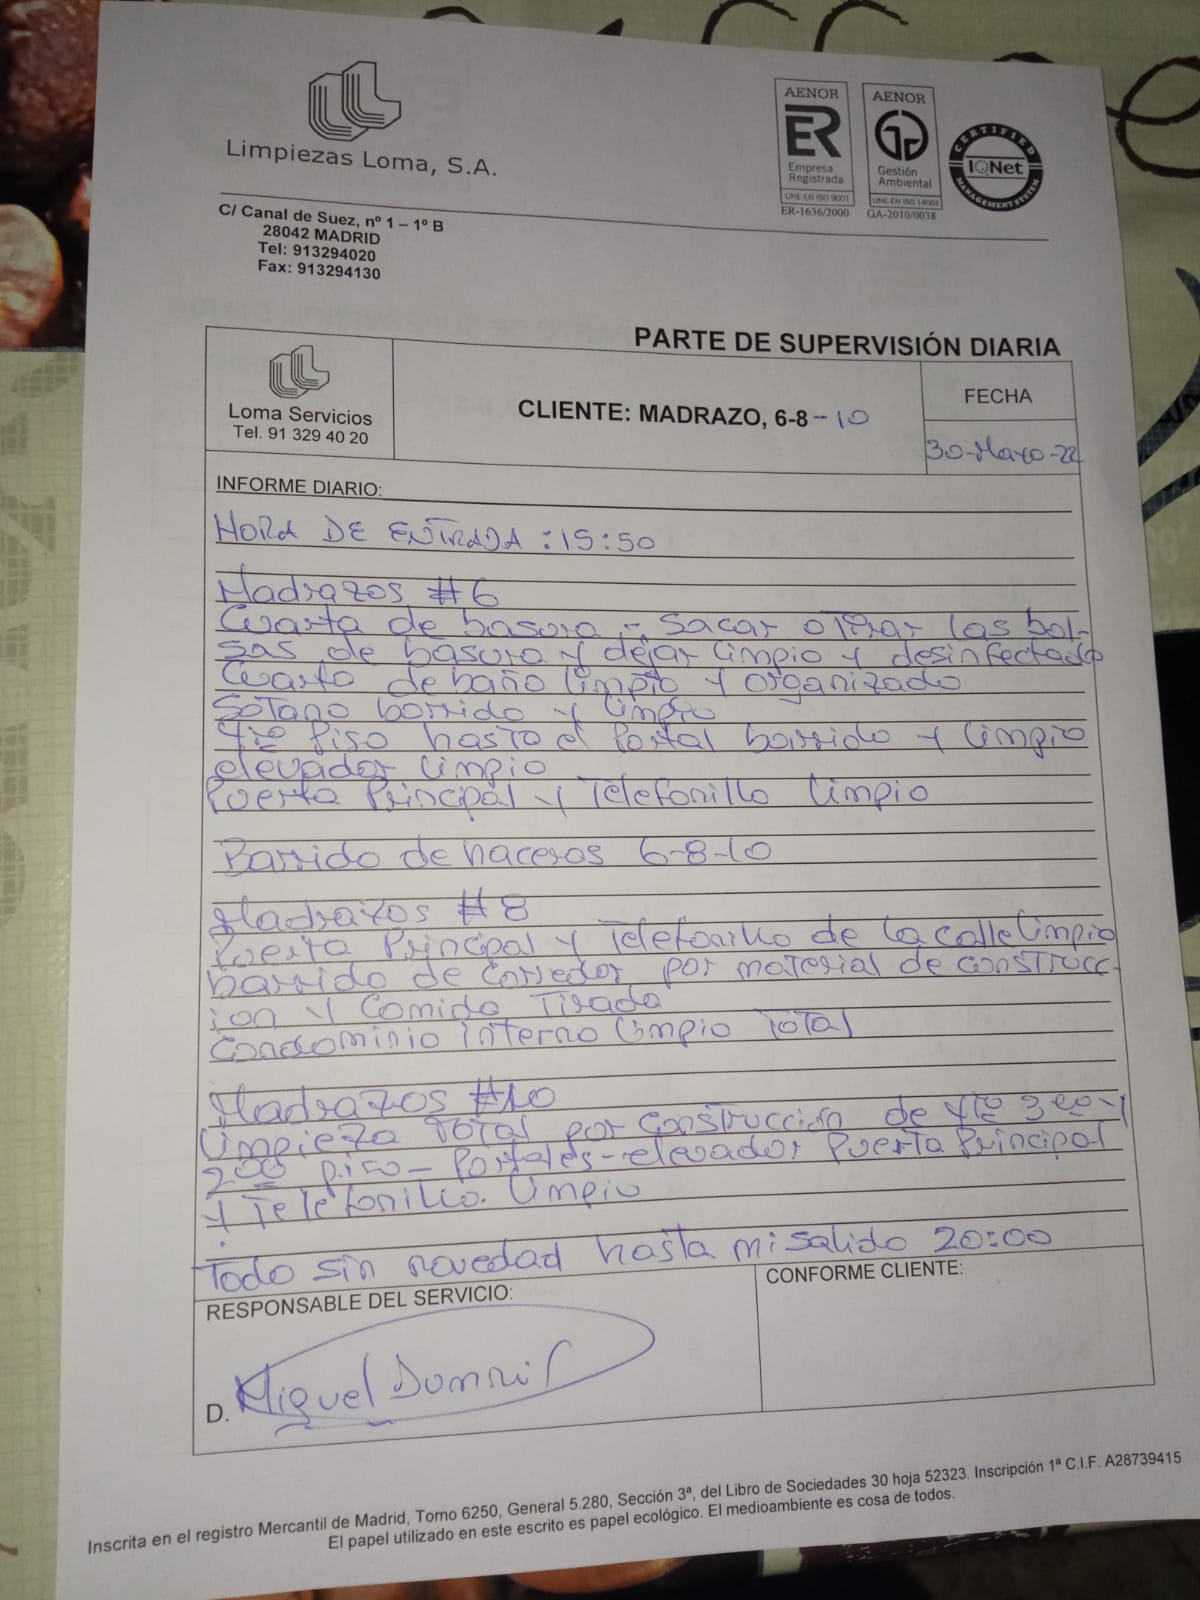 Limpiezas Loma, S.A.
C/ Canal de Suez, nº 1 – 1º B
28042 MADRID
Tel: 913294020
Fax: 913294130
AENOR
ER
Empresa
Registrada
UNE-EN ISO 9001
ER-1636/2000
AENOR
Gestión
Ambiental
UNE-EN ISO 14001
GA-2010/0038
CERTIFIED
IQNet
MANAGEMENT SYSTEM
PARTE DE SUPERVISIÓN DIARIA
Loma Servicios
Tel. 91 329 40 20
CLIENTE: MADRAZO, 6-8-10
FECHA
30-Mayo-22
INFORME DIARIO:
HORA DE ENTRADA : 15:50
Madrazos #6
Cuarta de basura - Sacar o Tirar las bol-
sas de basura y dejar limpio y desinfectado
Cuarto de baño limpio y organizado
Sótano barrido y limpio
4to piso hasta el Portal barrido y limpio
elevador limpio
Puerta Principal y Telefonillo limpio
Barrido de haceras 6-8-10
Madrazos #8
Puerta Principal y Telefonillo de la calle limpio
barrido de corredor por material de construcc-
ion y Comida Tirada
Condominio interno limpio Total
Madrazos #10
limpieza Total por construcción de 4to 3ero y
2do piso - Portales - elevador Puerta Principal
y Telefonillo. limpio
Todo sin novedad hasta mi salida 20:00
RESPONSABLE DEL SERVICIO:
CONFORME CLIENTE:
D. Miguel
Inscrita en el registro Mercantil de Madrid, Tomo 6250, General 5.280, Sección 3ª, del Libro de Sociedades 30 hoja 52323. Inscripción 1ª C.I.F. A28739415
El papel utilizado en este escrito es papel ecológico. El medioambiente es cosa de todos.